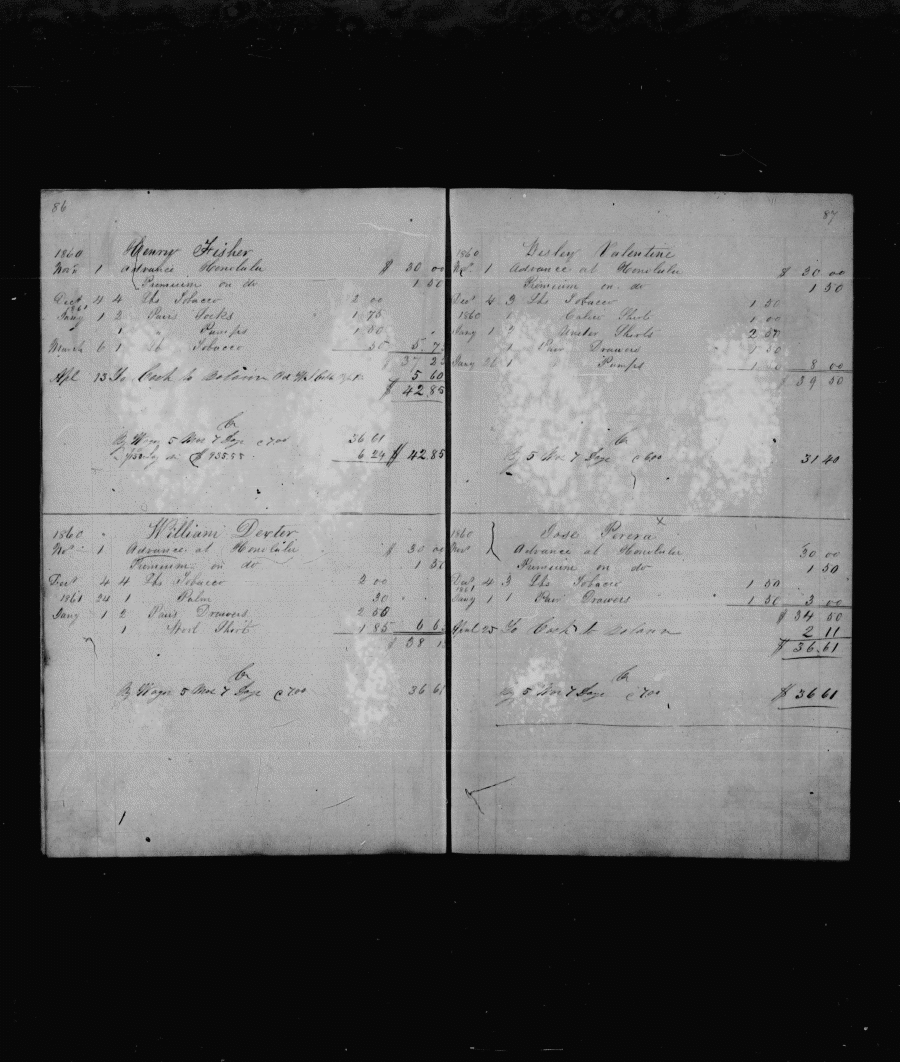 86
1860 Henry Fisher
Nov. 1 Advance Honolulu $ 30 00
Premium on do 1 50
Dec 4 4 Lbs Tobacco 2 00
1861
Jany 1 2 Pairs Socks 1 75
1 " Pumps 1 50
March 6 1 Lb Tobacco 50 5 7
$ 37 25
Apl 13 To Cash to Balance 5 60
$ 42.85
Cr
By Wages 5 Mos 7 Days 700 36 61
6 24 $ 42.85
1860 William Dexter
Nov. 1 Advance at Honolulu $ 30 00
Premium on do 1 50
Dec 4 4 Lbs Tobacco 2 00
1861 24 1 Palm 30
Jany 1 2 Pairs Drawers 2 50
1 Shirt 1 85 6 6
$ 38 1
Cr
By Wages 5 Mos 7 Days 700 36 61
87
1860 Disley Valentine
Nov. 1 Advance at Honolulu $ 30 00
Premium on do 1 50
Dec 4 3 Lbs Tobacco 1 50
1860 1 Calico Shirt 1 00
Jany 1 2 Under Shirts 2 50
1 Pair Drawers 1 50
Jany 26 1 " Pumps 1 50 8 00
$ 39 50
Cr
By 5 Mos 7 Days 600 31 40
1860 Jose Perera x
Nov Advance at Honolulu 30 00
Premium on do 1 50
Dec 4 3 Lbs Tobacco 1 50
1861
Jany 1 1 Pair Drawers 1 50 3 00
$ 34 50
April 25 To Cash to Balance 2 11
$ 36.61
Cr
By 5 Mos 7 Days 700 $ 36 61